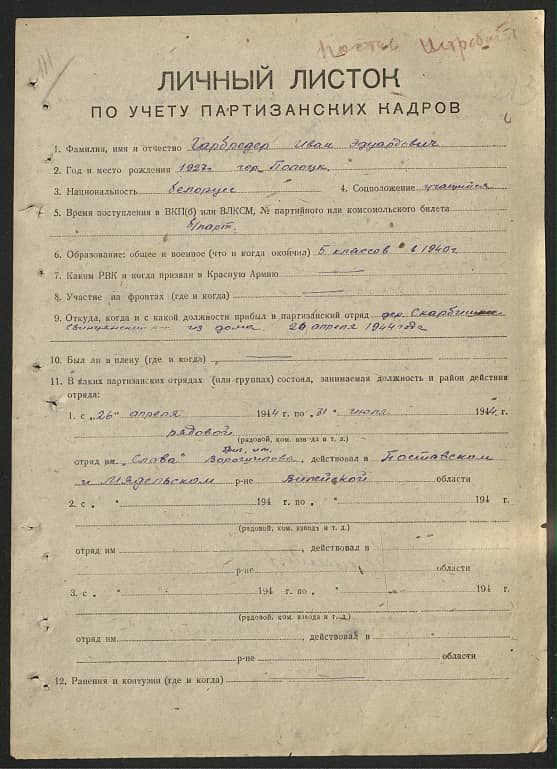 ЛИЧНЫЙ ЛИСТОК
ПО УЧЕТУ ПАРТИЗАНСКИХ КАДРОВ
1. Фамилия, имя и отчество Гарбредер Иван Эдуардович
2. Год и место рождения 1927г. гор. Полоцк
3. Национальность белорус 4. Соцположение учащийся
5. Время поступления в ВКП(б) или ВЛКСМ, № партийного или комсомольского билета
б/парт.
6. Образование: общее и военное (что и когда окончил) 5 классов в 1940г
7. Каким РВК и когда призван в Красную Армию
8. Участие на фронтах (где и когда)
9. Откуда, когда и с какой должности прибыл в партизанский отряд дер.
из дома 26 апреля 1944 года
10. Был ли в плену (где и когда)
11. В каких партизанских отрядах (или группах) состоял, занимаемая должность и район действия
отряда:
1. с „26" апреля 1944 г. по „31" июля 1944 г.
рядовой
(рядовой, ком. взвода и т. д.)
бриг. им.
отряд им. „Слава" Ворошилова, действовал в Поставском
и Мядельском р-не Вилейской области
2. с „ " 194 г. по „ " 194 г.
(рядовой, ком. взвода и т. д.)
отряд им , действовал в
р-не области
3. с „ " 194 г. по „ " 194 г.
(рядовой, ком. взвода и т. д.)
отряд им , действовал в
р-не области
12. Ранения и контузии (где и когда)